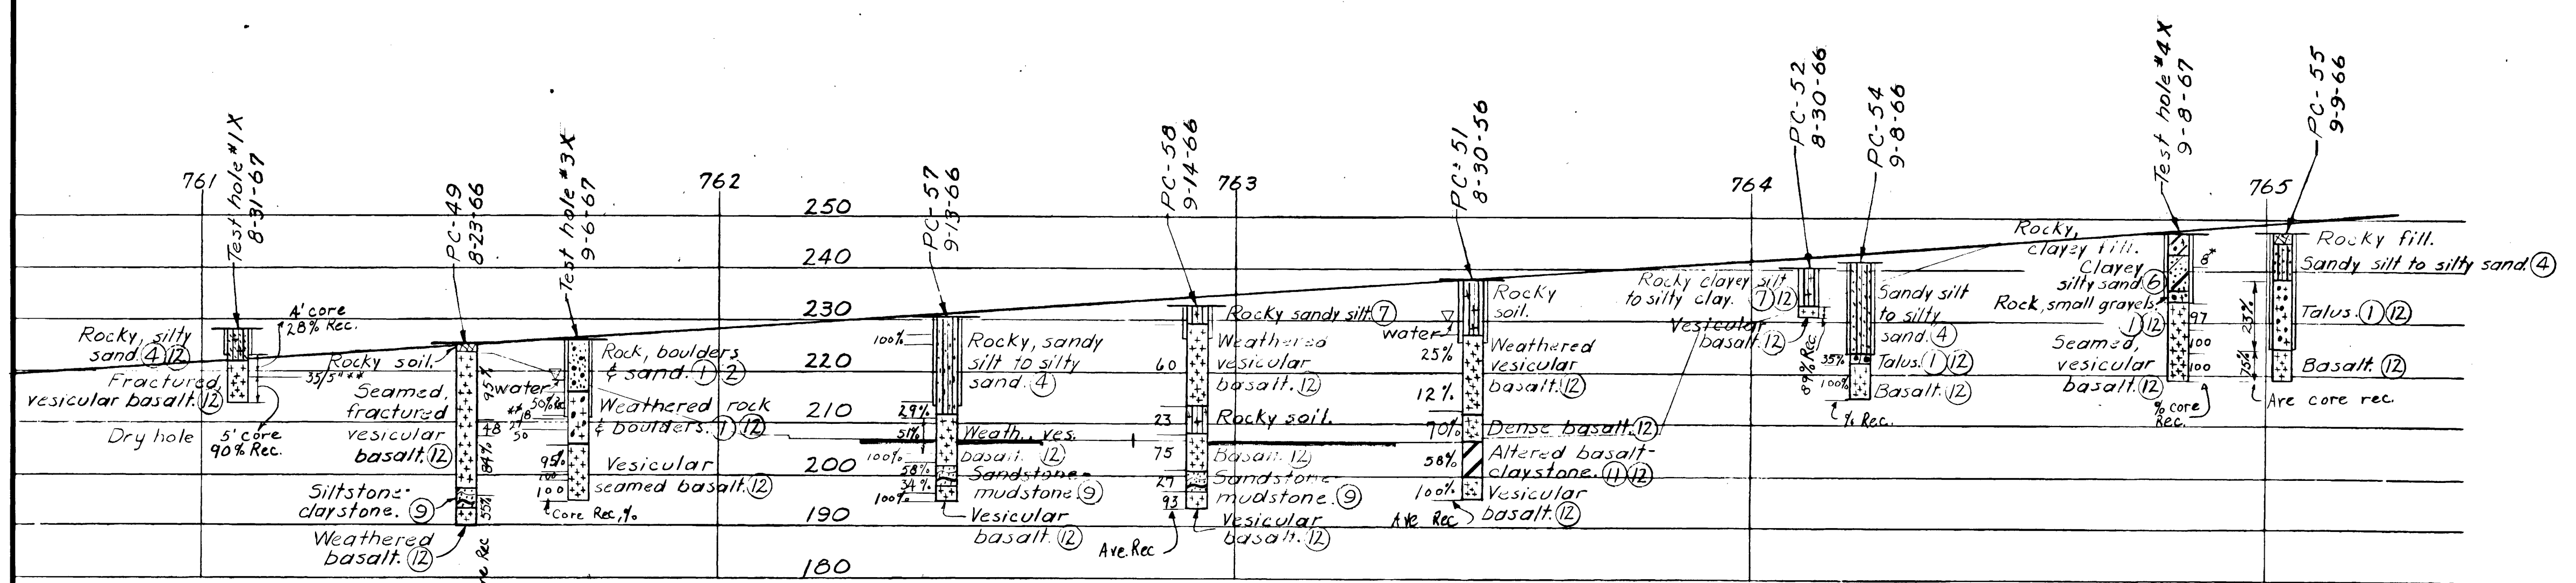 761
762
763
764
765
250
240
230
220
210
200
190
180
Test hole #1X
8-31-67
4' core
28% Rec.
Rocky, silty
sand. (4) (12)
35/5"**
Fractured,
vesicular basalt. (12)
Dry hole
5' core
90% Rec.
PC-49
8-23-66
Rocky soil.
Seamed,
fractured
vesicular
basalt. (12)
95%
48
84%
55%
Siltstone-
claystone. (9)
Weathered
basalt. (12)
Rec
Test hole #3X
9-6-67
water
Rock, boulders
& sand. (1) (2)
50% Rec
50
Weathered rock
& boulders. (1) (12)
95%
100
100
Vesicular
seamed basalt. (12)
Core Rec, %
PC-57
9-13-66
100%
Rocky, sandy
silt to silty
sand. (4)
29%
51%
Weath. ves.
basalt. (12)
100%
58%
34%
100%
Sandstone-
mudstone (9)
Vesicular
basalt. (12)
PC-58
9-14-66
Rocky sandy silt. (7)
60
Weathered
vesicular
basalt. (12)
23
Rocky soil.
75
Basalt. (12)
27
Sandstone-
mudstone. (9)
93
Vesicular
basalt. (12)
Ave. Rec
PC-51
8-30-56
Rocky
soil.
water
25%
12%
Weathered
vesicular
basalt. (12)
70%
Dense basalt. (12)
58%
Altered basalt-
claystone. (11) (12)
100%
Vesicular
basalt. (12)
Ave Rec
PC-52
8-30-66
Rocky clayey silt
to silty clay. (7) (12)
Vesicular
basalt. (12)
89% Rec.
PC-54
9-8-66
Sandy silt
to silty
sand. (4)
35%
Talus. (1) (12)
100%
Basalt. (12)
% Rec.
Test hole #4X
9-8-67
Rocky,
clayey fill.
Clayey
silty sand. (6)
8*
Rock, small gravels
(1) (12)
97
100
100
Seamed,
vesicular
basalt. (12)
% core
Rec.
PC-55
9-9-66
Rocky fill.
Sandy silt to silty sand. (4)
23%
Talus. (1) (12)
75%
Basalt. (12)
Ave core rec.